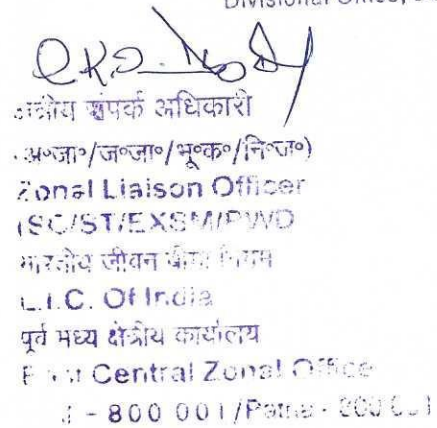 Divisional Office,
संपर्क अधिकारी
अ०जा०/ज०जा०/भू०क०/नि०ज०)
Zonal Liaison Officer
(SC/ST/EXSM/PWD
भारतीय जीवन बीमा निगम
L.I.C. Of India
पूर्व मध्य क्षेत्रीय कार्यालय
Central Zonal Office
- 800 001/Patna - 800 001